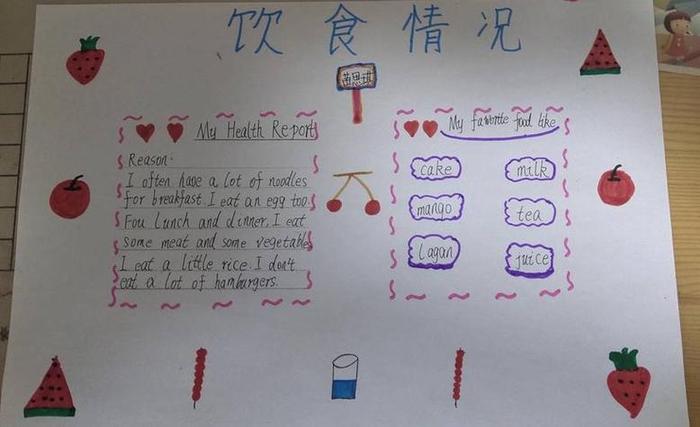 饮食情况
My Health Report
Reason.
I often have a lot of noodles
for breakfast. I eat an egg too.
Fou lunch and dinner, I eat
some meat and some vegetable
I eat a little rice. I don't
eat a lot of hamburgers.
My favorite food like
cake
milk
mango
tea
Lagan
juice